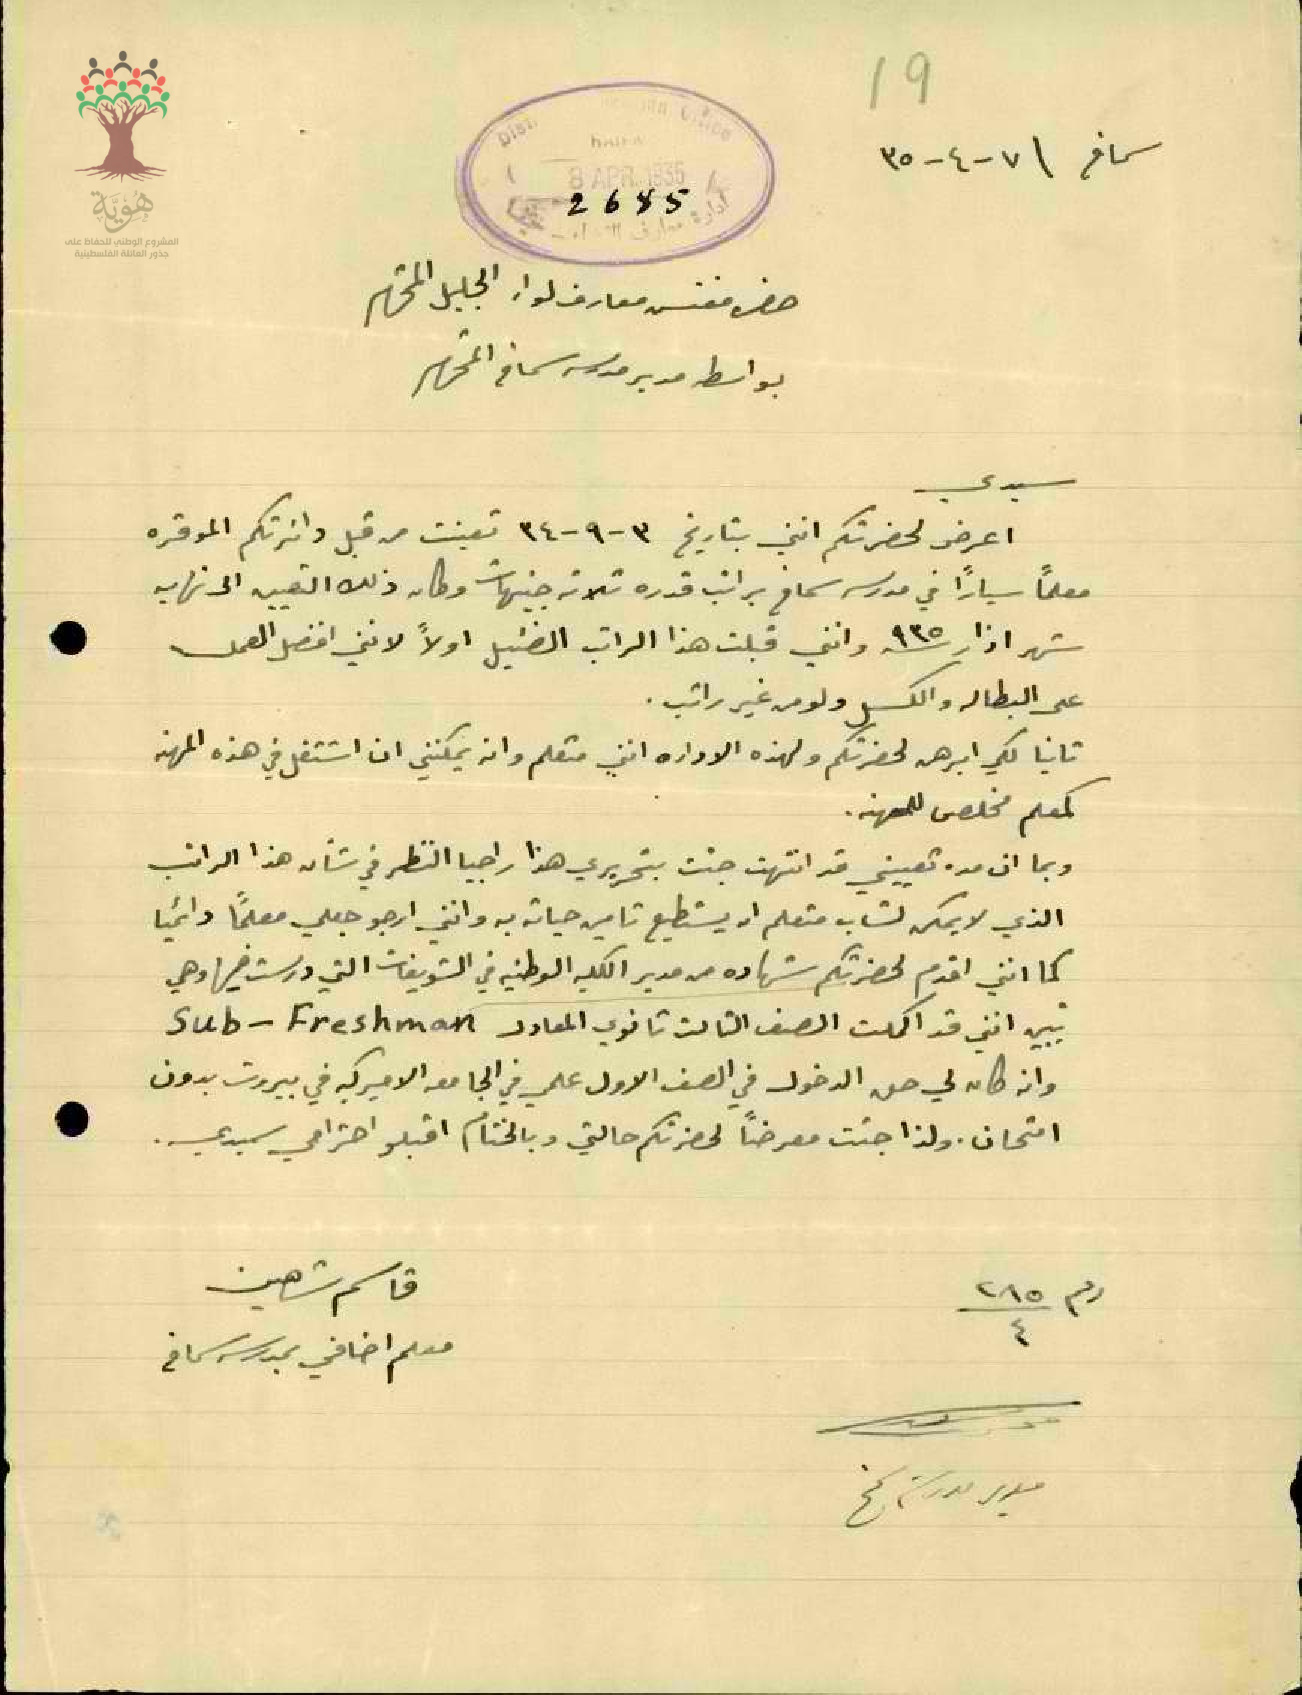 19
سماخ ٧-٤-٣٥
هُوِيَّة
المشروع الوطني للحفاظ على
جذور العائلة الفلسطينية
Office
HAIFA
8 APR. 1935
2685
ادارة معارف
حضرة مفتش معارف لواء الجليل المحترم
بواسطة مدير مدرسة سماخ المحترم
سيدي
اعرض لحضرتكم انني بتاريخ ٣-٩-٣٤ تعينت من قبل دائرتكم الموقره
معلماً سياراً في مدرسة سماخ براتب قدره ثلاثة جنيهات وكان ذلك التعيين الى نهاية
شهر اذار ٩٣٥ وانني قبلت هذا الراتب الضئيل اولاً لانني افضل العمل
على البطاله والكسل ولو من غير راتب.
ثانيا لكي ابرهن لحضرتكم ولهذه الاداره انني متعلم وانه يمكنني ان اشتغل في هذه المهنه
كمعلم مخلص للمهنه.
وبما ان مدة تعييني قد انتهت جئت بتحريري هذا راجيا النظر في شأن هذا الراتب
الذي لا يمكن لشاب متعلم ان يستطيع تامين حياته به وانني ارجو جعلي معلماً دائمياً
كما انني اقدم لحضرتكم شهاده من مدير الكليه الوطنيه في الشويفات التي درست فيها وهي
تبين انني قد اكملت الصف الثالث ثانوي المعادل Sub-Freshman
وانه كان لي حق الدخول في الصف الاول علمي في الجامعه الاميركيه في بيروت بدون
امتحان. ولذا جئت معرضاً لحضرتكم حالتي وبالختام اقبلو احترامي سيدي.
قاسم شاهين
معلم اضافي بمدرسة سماخ
رقم ٢٨٥
٤
مدير مدرسة سمخ